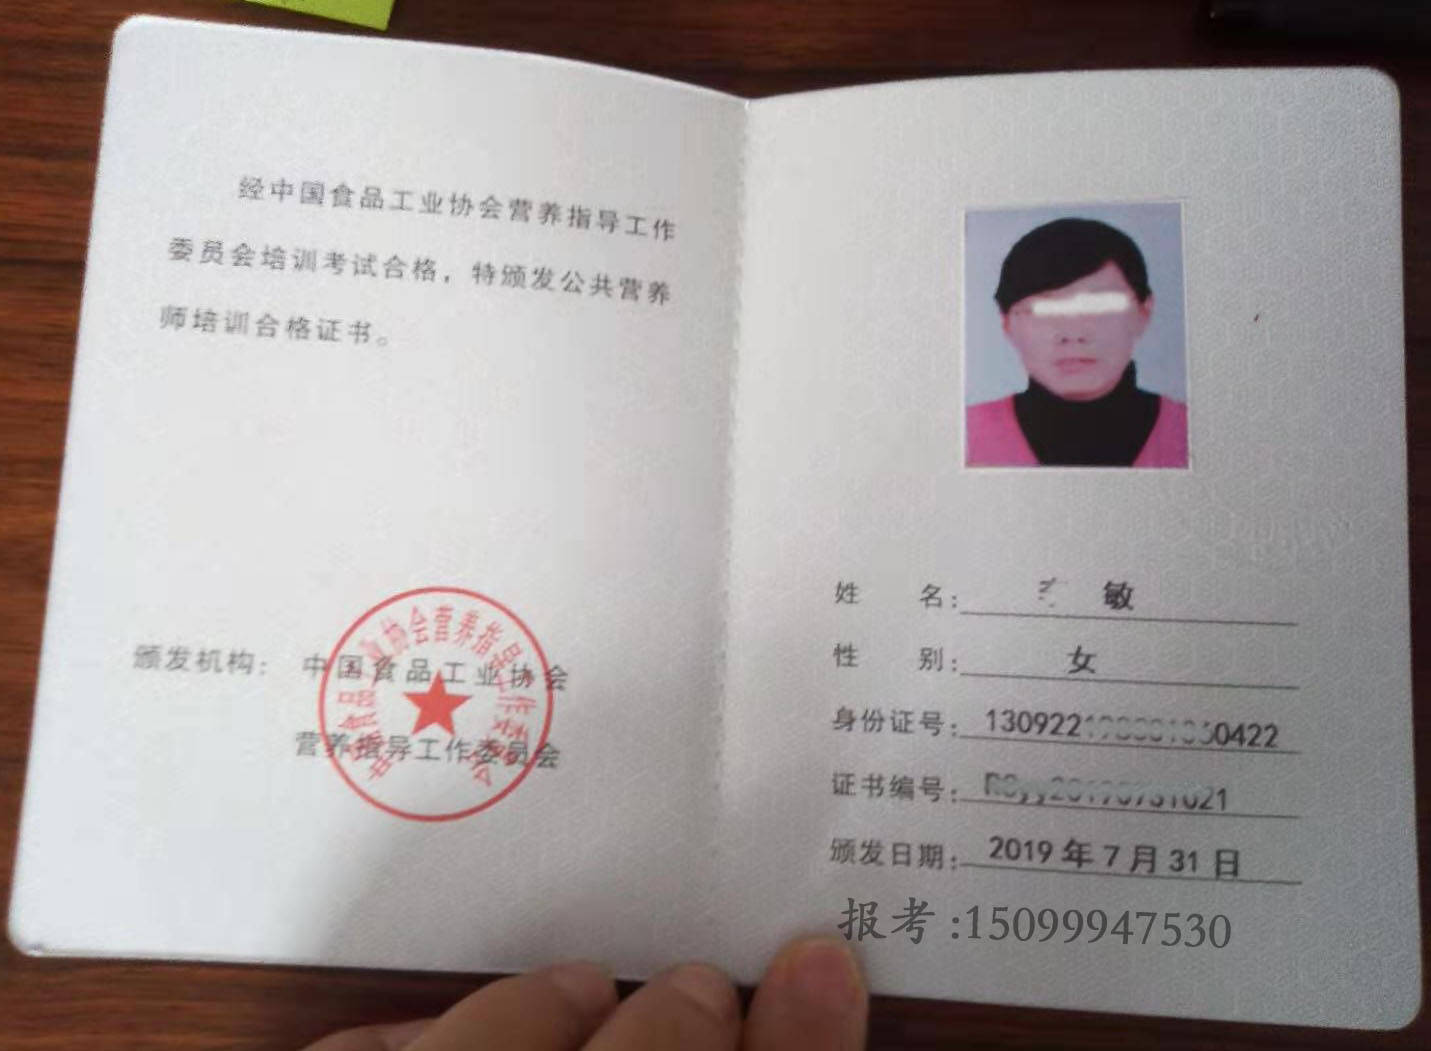 经中国食品工业协会营养指导工作
委员会培训考试合格，特颁发公共营养
师培训合格证书。
颁发机构：中国食品工业协会
营养指导工作委员会
姓 名： 敏
性 别：女
身份证号：130922 0422
证书编号：
颁发日期：2019年7月31日
报考:15099947530